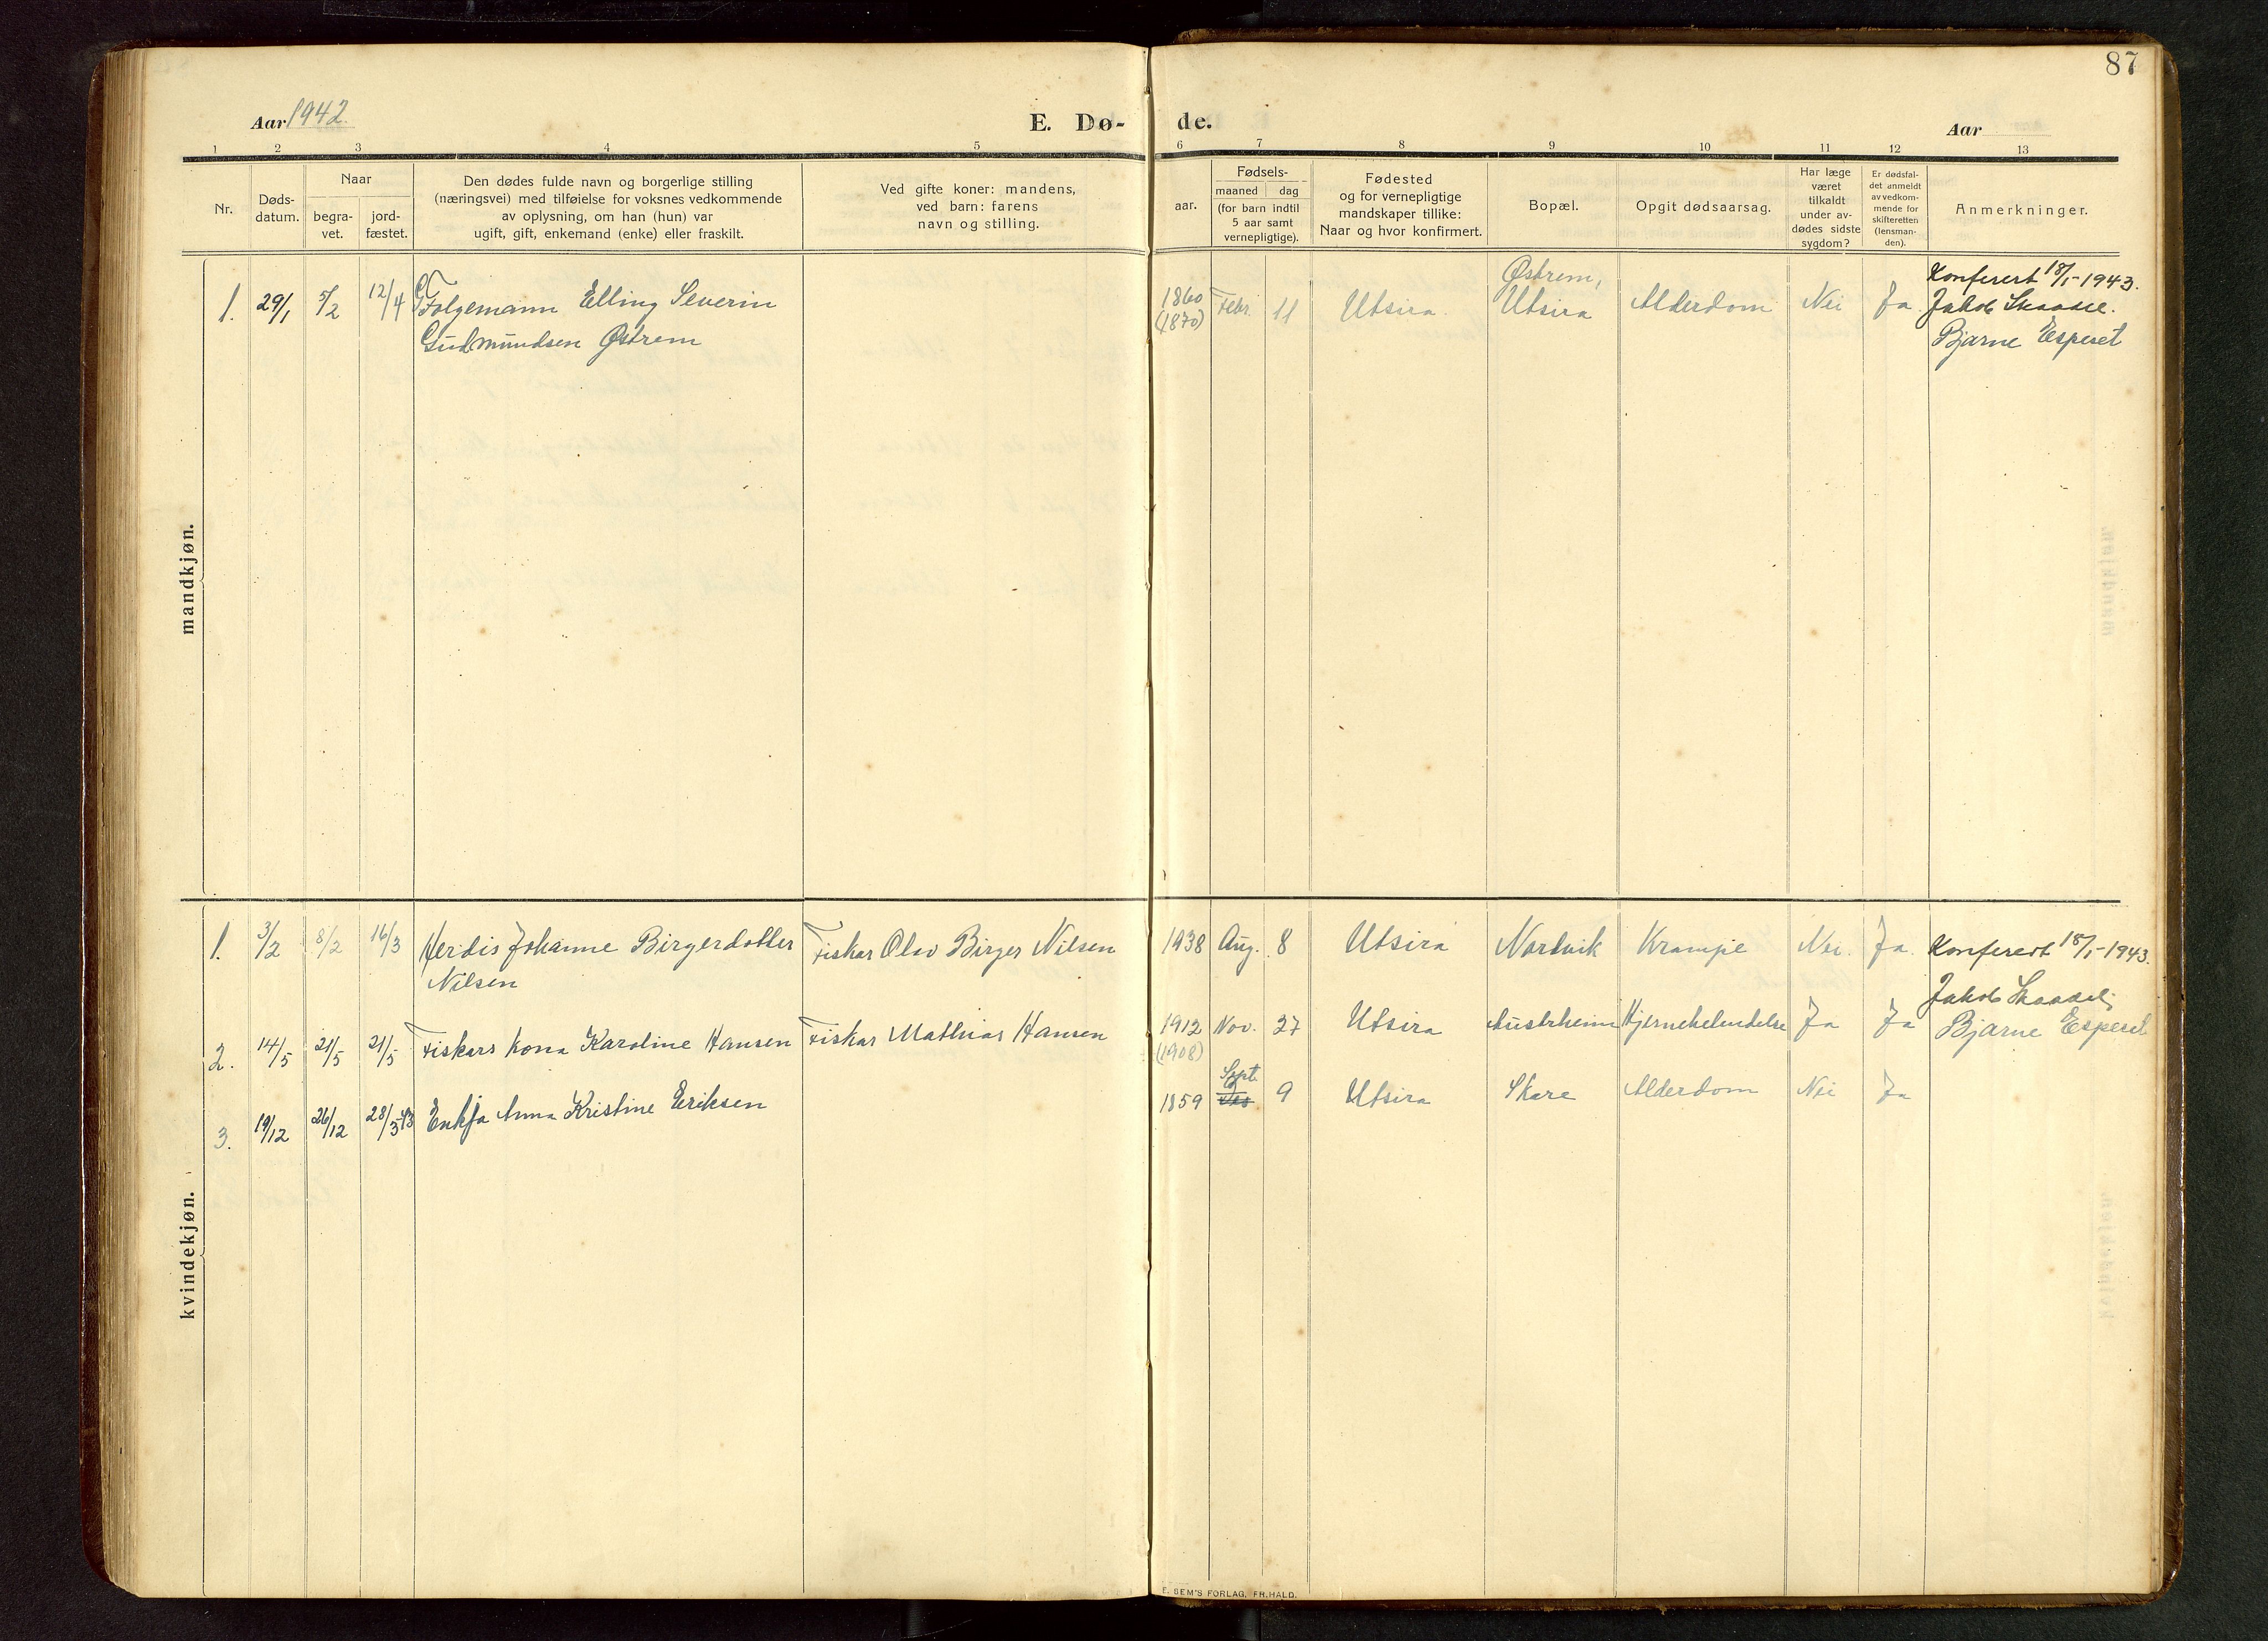 87
Aar 1942.
E. Dø-
de.
Aar
1 2 3 4 5 6 7 8 9 10 11 12 13
Nr.
Døds-
datum.
Naar
begra-
vet.
jord-
fæstet.
Den dødes fulde navn og borgerlige stilling
(næringsvei) med tilføielse for voksnes vedkommende
av oplysning, om han (hun) var
ugift, gift, enkemand (enke) eller fraskilt.
Ved gifte koner: mandens,
ved barn: farens
navn og stilling.
Fødsels-
aar.
maaned
dag
(for barn indtil
5 aar samt
vernepligtige).
Fødested
og for vernepligtige
mandskaper tillike:
Naar og hvor konfirmert.
Bopæl.
Opgit dødsaarsag.
Har læge
været
tilkaldt
under av-
dødes sidste
sygdom?
Er dødsfal-
det anmeldt
av vedkom-
mende for
skifteretten
(lensman-
den).
Anmerkninger.
mandkjøn.
1. 29/1 5/2 12/4 Folgemann Elling Severin
Gudmundsen Østrem
1860
(1870)
Febr. 11 Utsira.
Østrem,
Utsira
Alderdom Nei Ja.
Konferert 18/1-1943.
Jakob Skaadel.
Bjarne Espeset
kvindekjøn.
1. 3/2 8/2 16/3 Herdis Johanne Birgerdotter
Nilsen
Fiskar Olav Birger Nilsen
1938 Aug. 8 Utsira Nordvik Krampe Nei. Ja.
Konferert 18/1-1943.
Jakob Skaadel;
Bjarne Espeset
2. 14/5 21/5 21/5 Fiskars kona Karoline Hansen
Fiskar Mathias Hansen
1912
(1908)
Nov. 27 Utsira Austrheim Hjernebetendelse Ja Ja
3. 19/12 26/12 28/3-43 Enkja Anna Kristine Eriksen
1859
Sept.
9 Utsira Skare Alderdom Nei Ja
E. SEM'S FORLAG, FR.HALD.